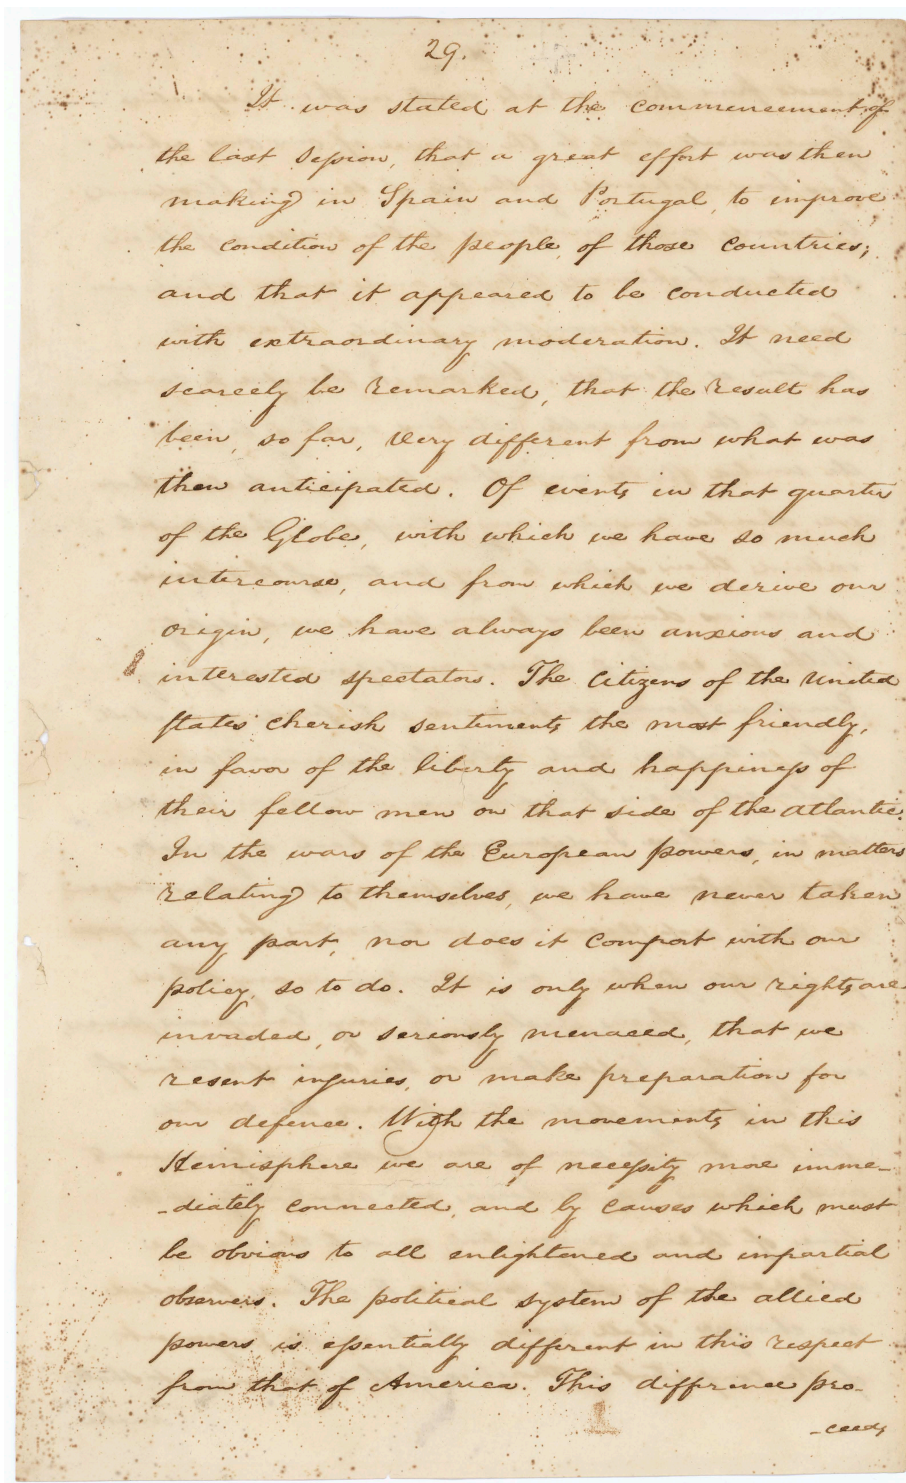 29.
It was stated at the commencement of
the last Session, that a great effort was then
making in Spain and Portugal, to improve
the condition of the people, of those Countries;
and that it appeared to be conducted
with extraordinary moderation. It need
scarcely be remarked, that the result has
been, so far, very different from what was
then anticipated. Of events in that quarter
of the Globe, with which we have so much
intercourse, and from which we derive our
origin, we have always been anxious and
interested spectators. The Citizens of the United
States cherish sentiments the most friendly,
in favor of the liberty and happiness of
their fellow men on that side of the atlantic.
In the wars of the European powers, in matters
relating to themselves, we have never taken
any part, nor does it comport with our
policy, so to do. It is only when our rights are
invaded, or seriously menaced, that we
resent injuries, or make preparation for
our defence. With the movements in this
Hemisphere we are of necessity more imme-
-diately connected, and by causes which must
be obvious to all enlightened and impartial
observers. The political system of the allied
powers is essentially different in this respect
from that of America. This difference pro-
-ceeds